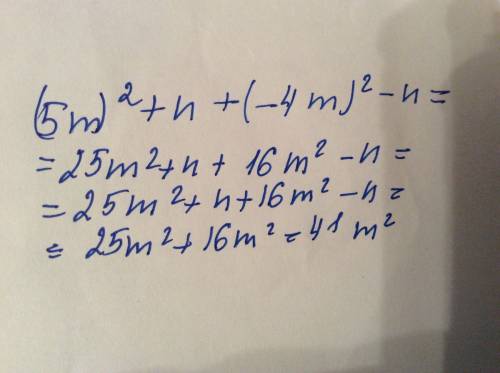 (5m)² + n + (-4m)² - n =
= 25m² + n + 16m² - n =
= 25m² + n + 16m² - n =
= 25m² + 16m² = 41m²